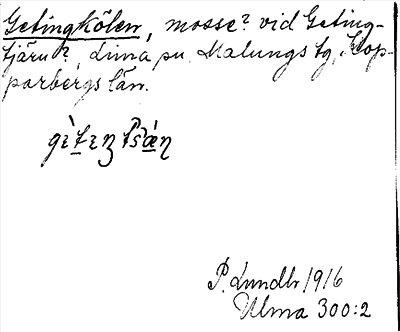 Getingkölen, mosse? vid Geting-
tjärn?, Lima sn. Malungs tg, Kop-
parbergs län.
P. Lundbr 1916
Ulma 300:2